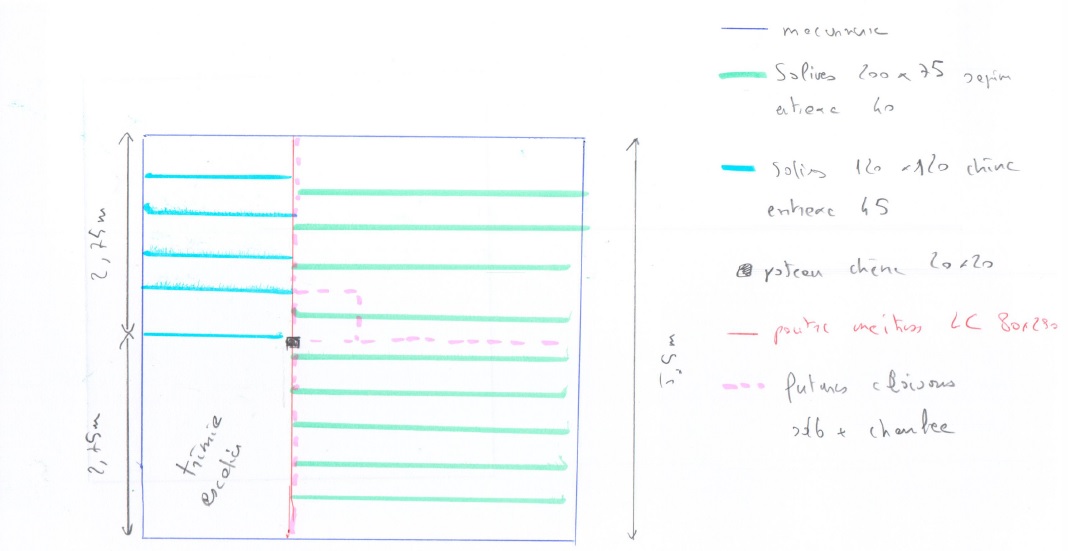 maçonnerie
Solives 200 x 75 sapin
entraxe 40
Solives 120 x 120 chêne
entraxe 45
poteau chêne 20x20
poutre maitresse LC 80x280
futures cloisons
sdb + chambre
2,75m
2,75m
5,5m
trémie
escalier